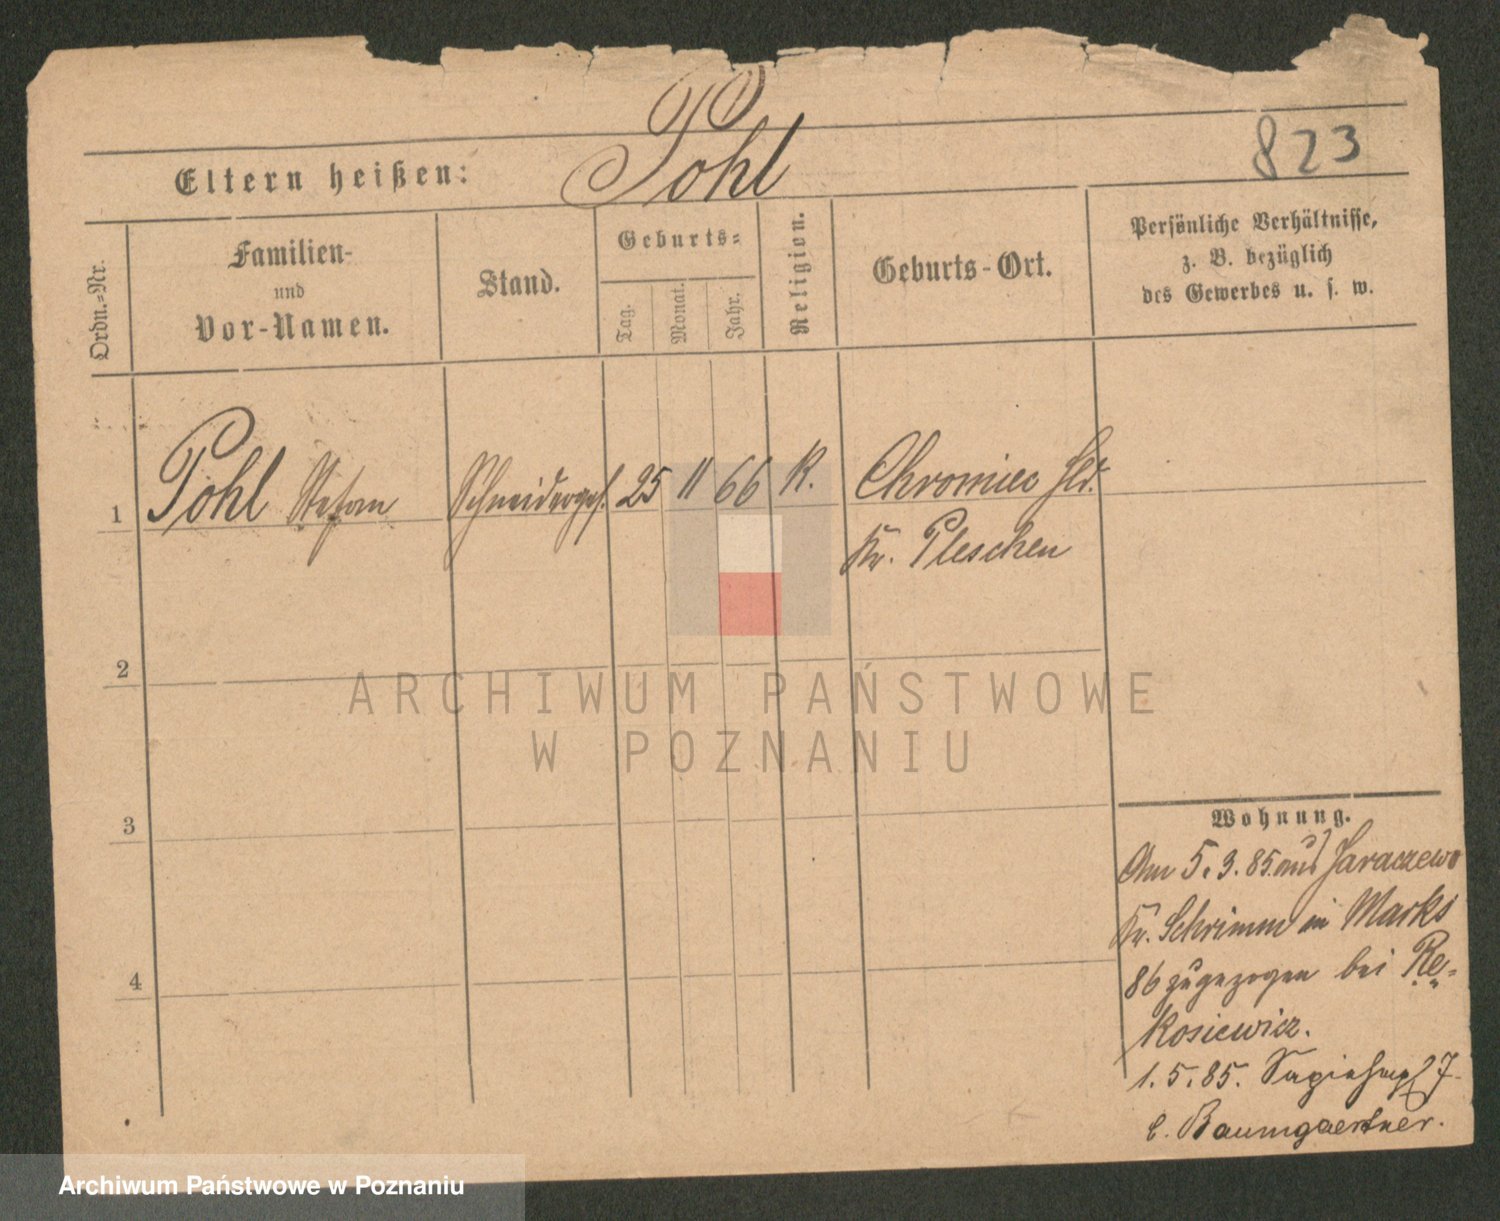 Pohl
823
Eltern heißen:
Ordn.=Nr.
Familien-
und
Vor-Namen.
Stand.
Geburts=
Tag.
Monat.
Jahr.
Religion.
Geburts-Ort.
Persönliche Verhältnisse,
z. B. bezüglich
des Gewerbes u. s. w.
1 Pohl Stefan Schneiderges. 25 11 66 K. Chromiec Hld.
Kr. Pleschen
2
3
4
Wohnung.
Am 5.3.85 aus Jaraczewo
Kr. Schrimm in Markt
86 zugezogen bei Re-
kosiewicz.
1.5.85. 7
b. Baumgaertner.
ARCHIWUM PAŃSTWOWE
W POZNANIU
Archiwum Państwowe w Poznaniu